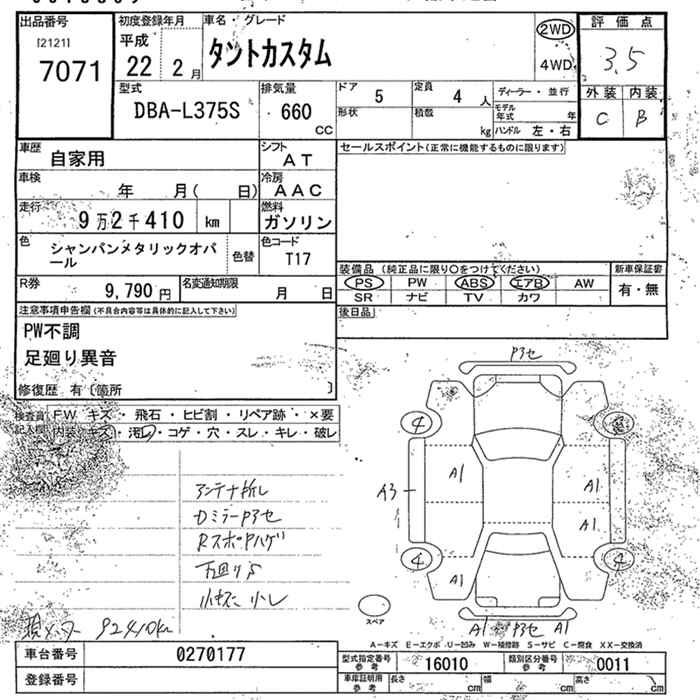 出品番号
[2121]
7071
初度登録年月
平成
22 2 月
車名・グレード
タントカスタム
2WD
4WD
評価点
3.5
外装 内装
C B
型式
DBA-L375S
排気量
660
CC
ドア 5
形状
定員 4 人
積載 kg
ディーラー・並行
モデル年式 年
ハンドル 左・右
車歴 自家用
シフト AT
セールスポイント(正常に機能するものに限ります)
車検 年 月( 日)
冷房 AAC
走行 9万2千410 km
燃料 ガソリン
色 シャンパンメタリックオパール
色替
色コード T17
装備品(純正品に限り○をつけてください)
新車保証書
PS PW ABS エアB AW
有・無
SR ナビ TV カワ
R券 9,790 円
名変通知期限 月 日
後日品
注意事項申告欄(不具合内容等は具体的に記入して下さい)
PW不調
足廻り異音
修復歴 有〔箇所 〕
検査員記入欄
FW キズ・飛石・ヒビ割・リペア跡・×要
内装 キズ・汚レ・コゲ・穴・スレ・キレ・破レ
アンテナ折レ
DミラーP3セ
RスポPハゲ
下廻りS
小キズ 小レ
92410km
P3セ
4
A1
A3
A1
A1
A1
4
4
A1 P3セ A1
スペア
A－キズ E－エクボ U－凹み W－補修跡 S－サビ C－腐食 XX－交換済
車台番号 0270177
登録番号
型式指定番号 参考 16010
類別区分番号 参考 0011
車庫証明用 参考
長さ cm 幅 cm 高さ cm